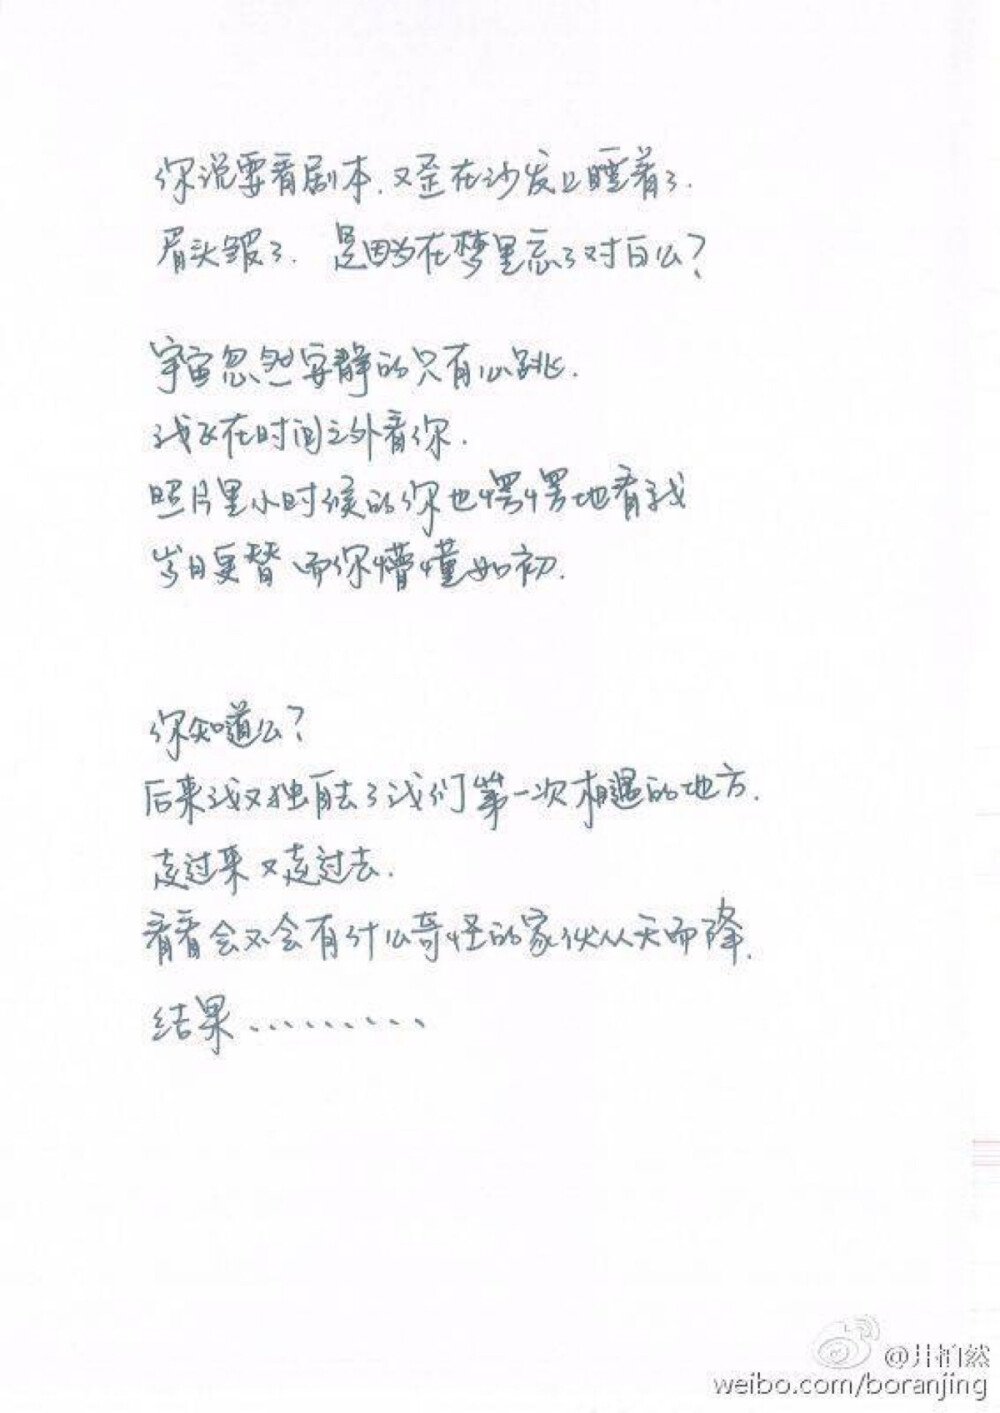 你说要看剧本.又歪在沙发上睡着了.
眉头皱了. 是因为在梦里忘了对白么?
宇宙忽然安静的只有心跳.
我正在时间之外看你.
照片里小时候的你也愣愣地看我
岁月更替 而你懵懂如初.
你知道么?
后来我又独自去了我们第一次相遇的地方.
走过来又走过去.
看看会不会有什么奇怪的家伙从天而降.
结果.........
@井柏然
weibo.com/boranjing